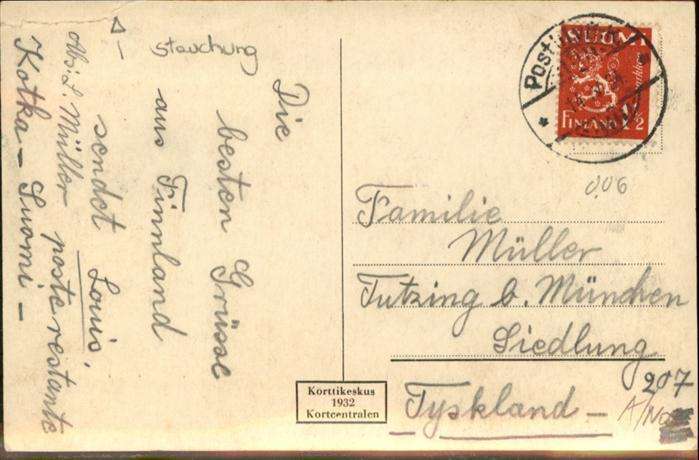 Stauchung
Die
besten Grüsse
aus Finnland
sendet Louis,
Abs: L. Müller poste restante
Kotka – Suomi –
SUOMI
FINLAND 1½
Post
0,06
Familie
Müller
Tutzing b. München
Siedlung
Tyskland –
207
Korttikeskus
1932
Kortcentralen